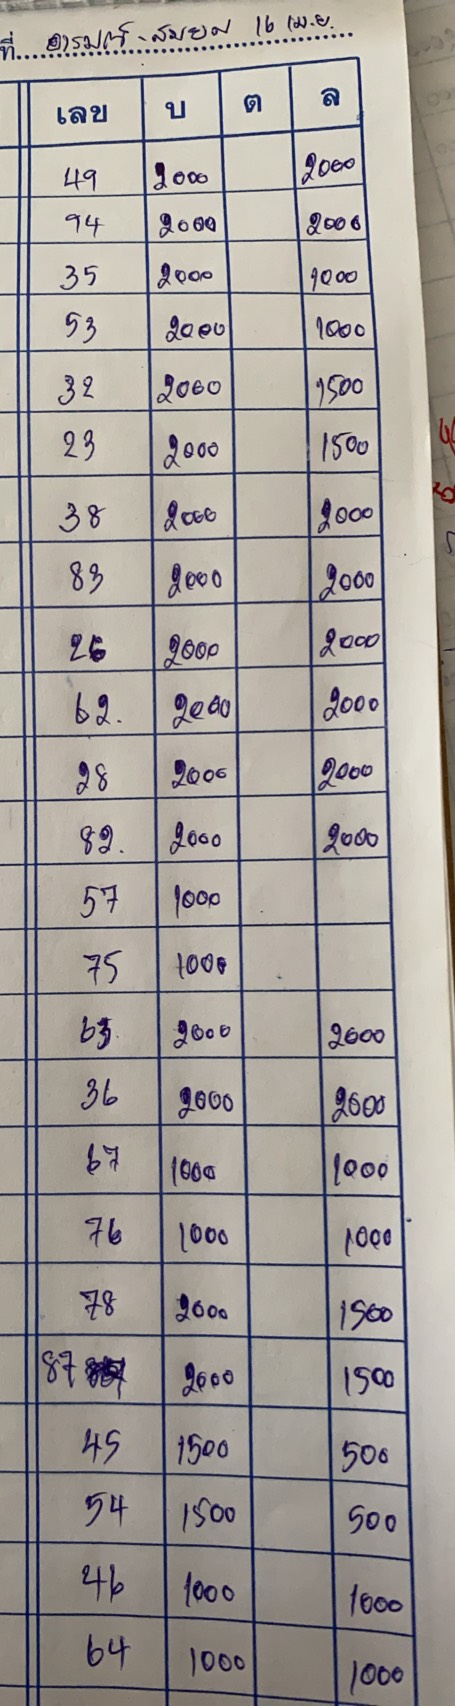 ที่ อารมณ์ - สมยศ 16 เม.ย.
เลข บ ต ล
49 2000 2000
94 2000 2000
35 2000 1000
53 2000 1000
32 2000 1500
23 2000 1500
38 2000 2000
83 2000 2000
26 2000 2000
62. 2000 2000
28 2000 2000
82. 2000 2000
57 1000
75 1000
63. 2000 2000
36 2000 2000
67 1000 1000
76 1000 1000
78 2000 1500
87 2000 1500
45 1500 500
54 1500 500
46 1000 1000
64 1000 1000